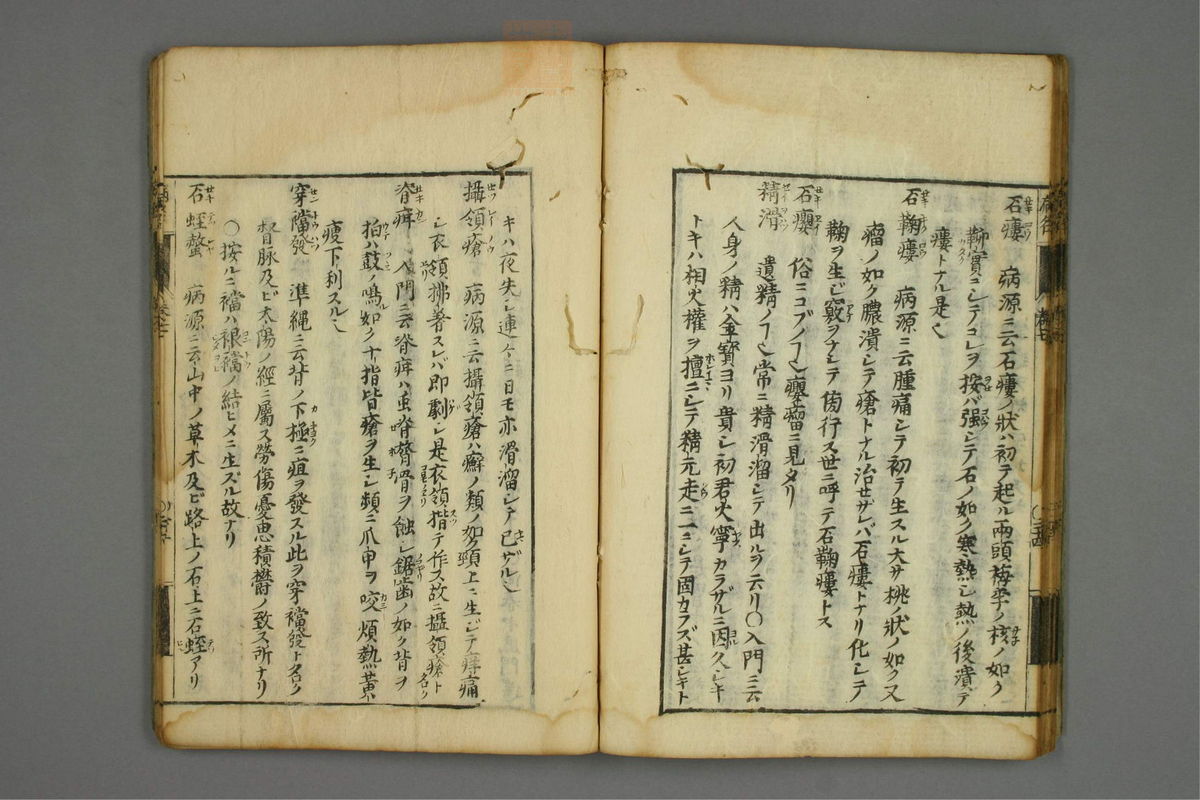 石瘻 病源ニ云石瘻ノ状ハ初テ起ル兩頭梅李ノ核ノ如ク
鞕實ニシテコレヲ按バ强シテ石ノ如ク寒熱シ熱ノ後潰テ
瘻トナル是也
石鞠瘻 病源ニ云腫痛シテ初テ生スル大サ桃ノ状ノ如ク又
瘤ノ如ク膿潰シテ瘡トナル治セザレバ石瘻トナリ化シテ
鞠ヲ生ジ竅ヲナシテ傍行ス世ニ呼テ石鞠瘻トス
石癭 俗ニコブノヿ也癭瘤ニ見タリ
精滑 遺精ノヿ也常ニ精滑溜シテ出ルヲ云リ〇入門ニ云
人身ノ精ハ金寳ヨリ貴シ初君火寧カラザルニ因久シキ
トキハ相火權ヲ擅ニシテ精元走ニ一ニシテ固カラズ甚シキト
キハ夜失シ連ケニ日モ亦滑溜シテ已ザル也
攝領瘡 病源ニ云攝領瘡ハ癬ノ類ノ如ク頸上ニ生ジテ痒痛
シ衣領拂着スレバ即劇シ是衣領揩テ作ス故ニ攝領瘡ト名ク
脊疳 入門ニ云脊疳ハ虫脊膂骨ヲ蝕シ鋸歯ノ如ク背ヲ
拍ハ鼓ノ鳴如ク十指皆瘡ヲ生シ頻ニ爪甲ヲ咬煩熱黄
痩下利スル也
穿襠發 準繩ニ云背ノ下極ニ疽ヲ發スル此ヲ穿襠發ト名ク
督脉及ビ太陽ノ經ニ屬ス勞傷憂思積欝ノ致ス所ナリ
〇按ルニ襠ハ裩襠ノ結ヒメニ生ズル故ナリ
石蛭螫 病源ニ云山中ノ草木及ビ路上ノ石上ニ石蛭アリ